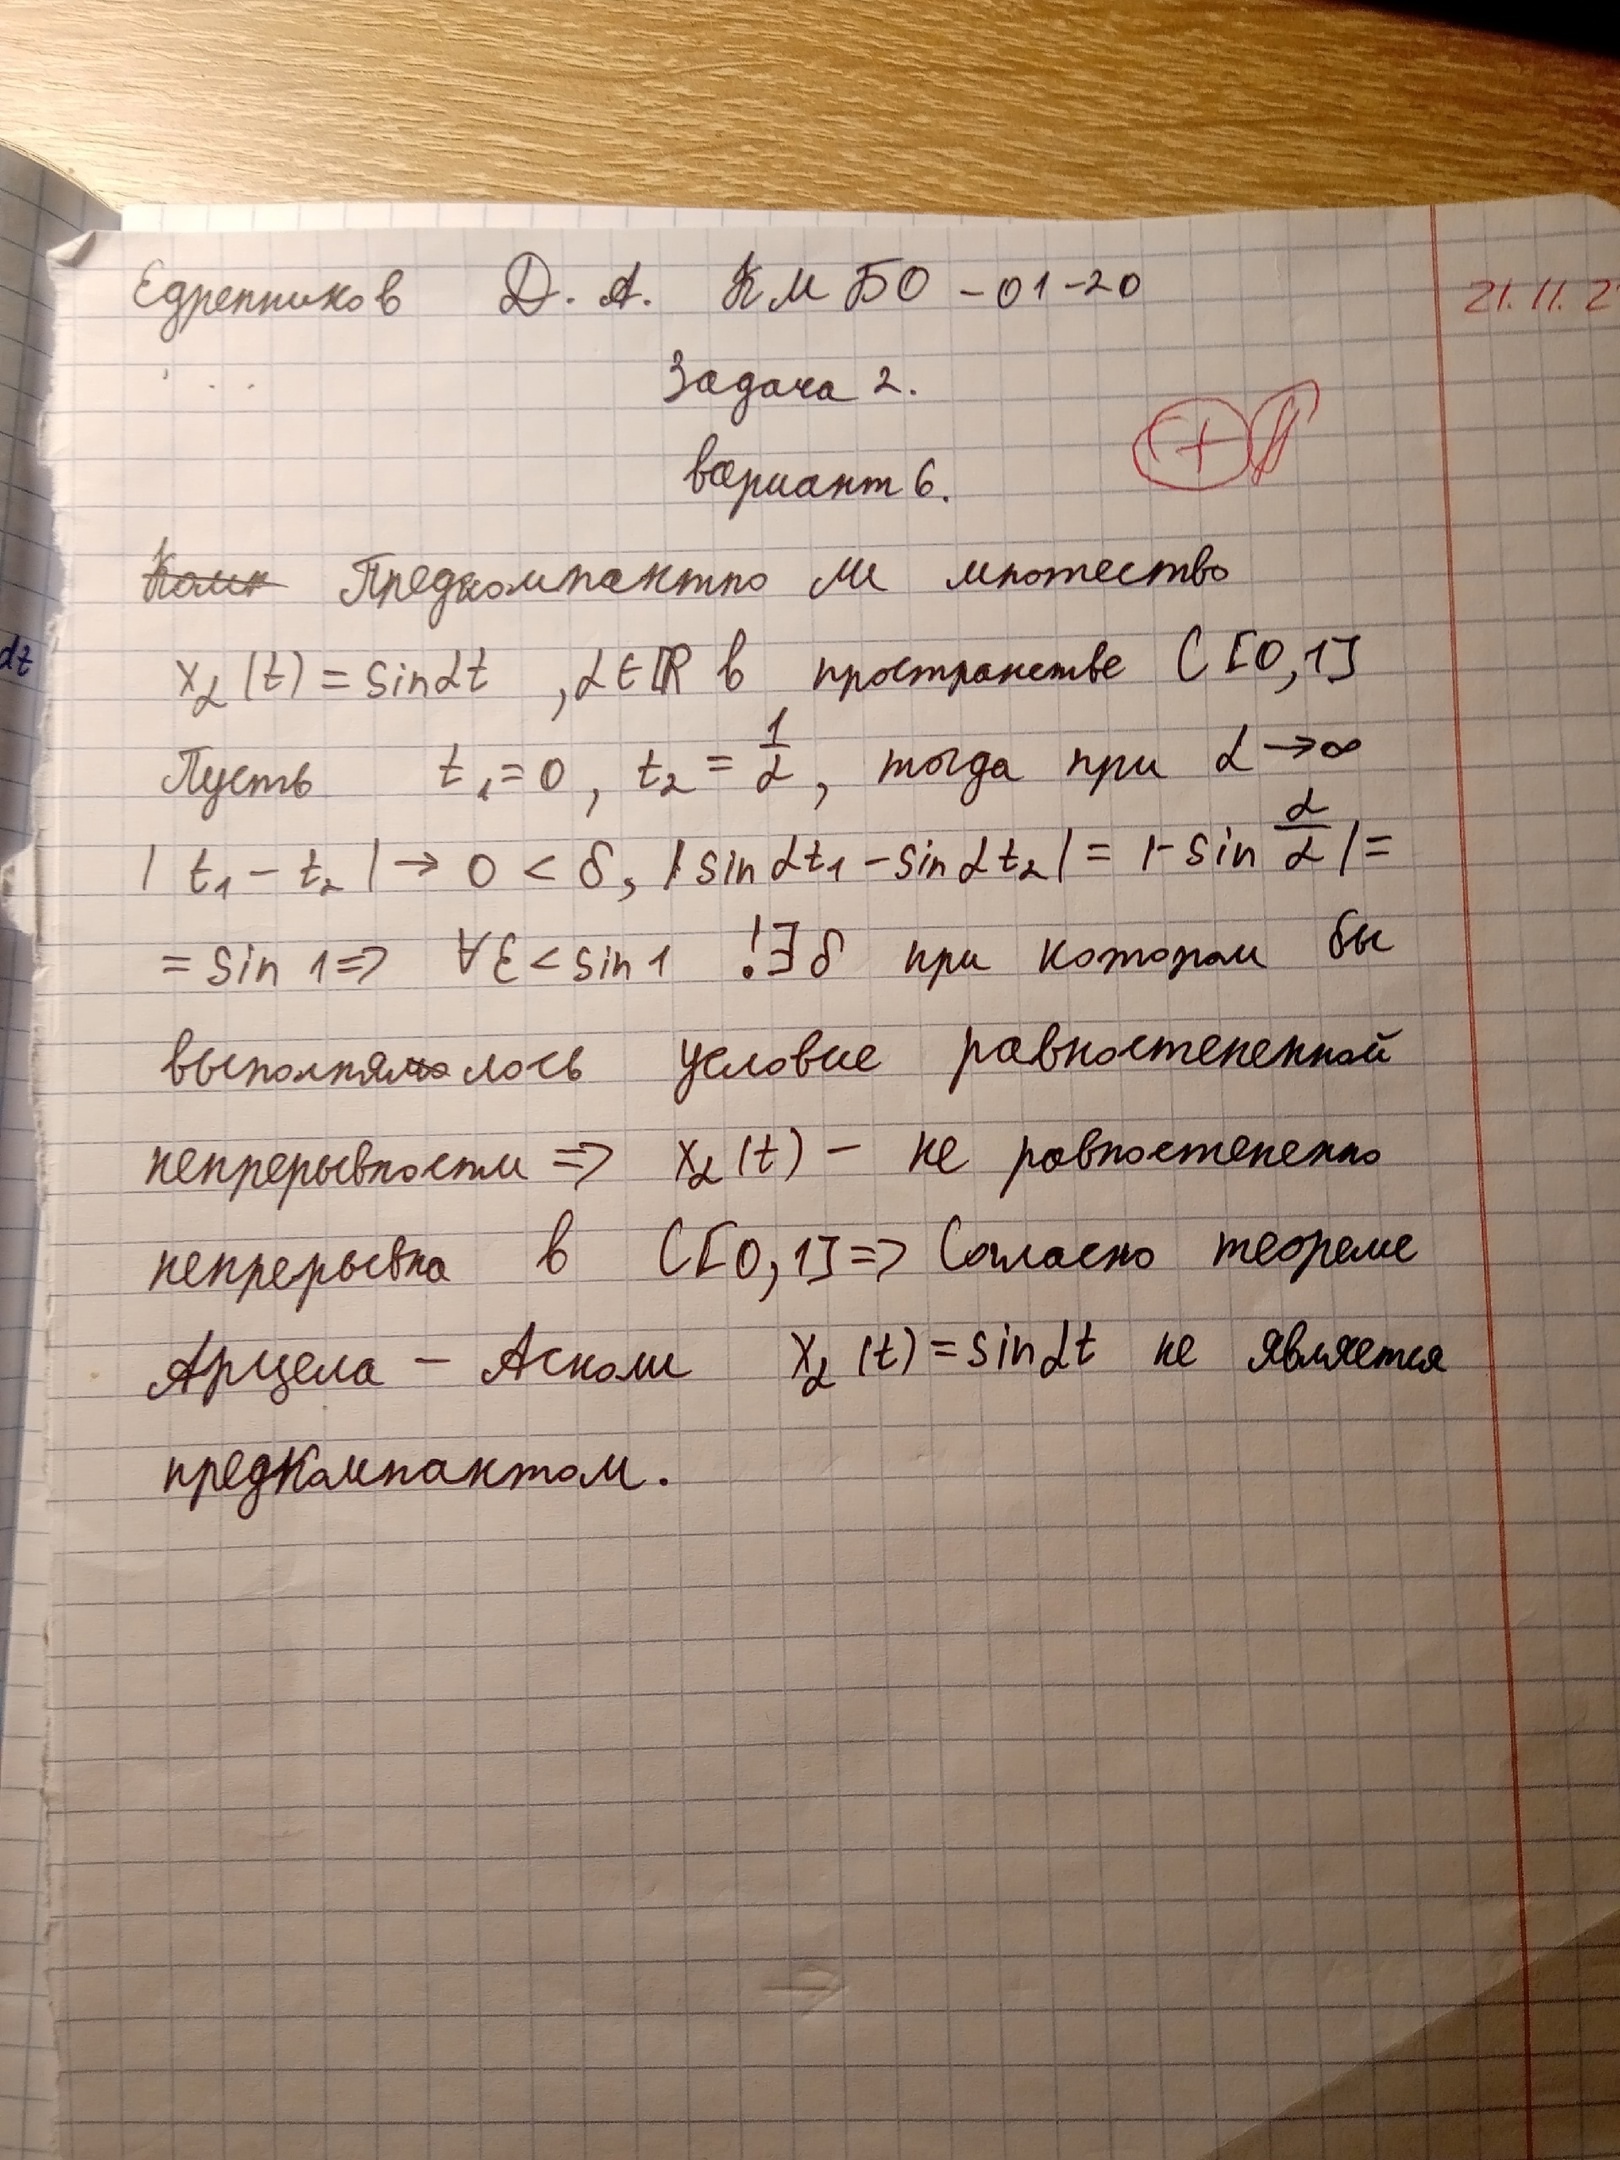 Едренников Д. А. КМБО-01-20
21.11.2
Задача 2.
вариант 6.
+
Предкомпактно ли множество
dt
x_α(t) = sin αt, α∈ℝ в пространстве C[0,1]
Пусть t₁=0, t₂ = 1/α, тогда при α→∞
|t₁ - t₂| → 0 < δ, |sin αt₁ - sin αt₂| = |-sin α/α| =
= sin 1 => ∀ε < sin 1 !∃δ при котором бы
выполнялось условие равностепенной
непрерывности => x_α(t) - не равностепенно
непрерывна в C[0,1] => Согласно теореме
Арцела - Асколи x_α(t) = sin αt не является
предкомпактом.